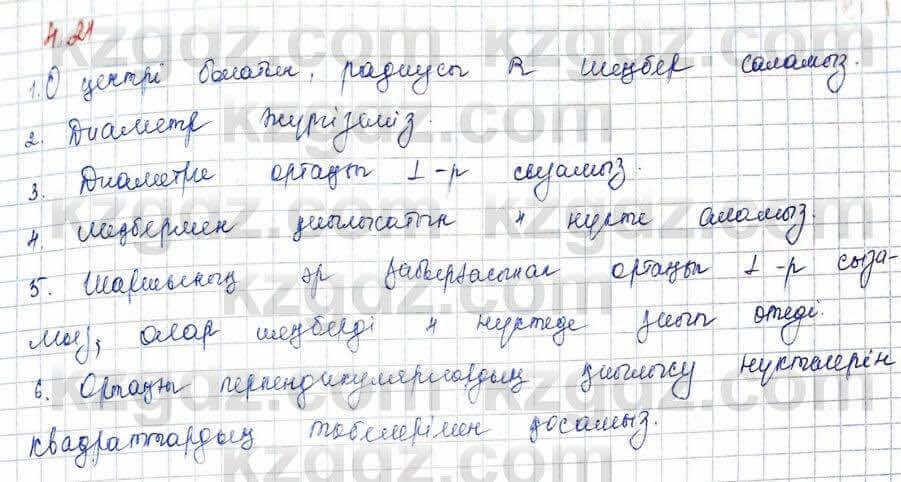 4.21
1. О центрі болатын, радиусы R шеңбер саламыз.
2. Диаметр жүргіземіз.
3. Диаметрге ортаңғы ⊥-р сызамыз.
4. Шеңбермен қиылысатын 4 нүкте аламыз.
5. Шаршының әр қабырғасынан ортаңғы ⊥-р сыза-
мыз, олар шеңберді 4 нүктеде қиып өтеді.
6. Ортаңғы перпендикулярлардың қиылысу нүктелерін
квадраттардың төбелерімен қосамыз.
kzgdz.com